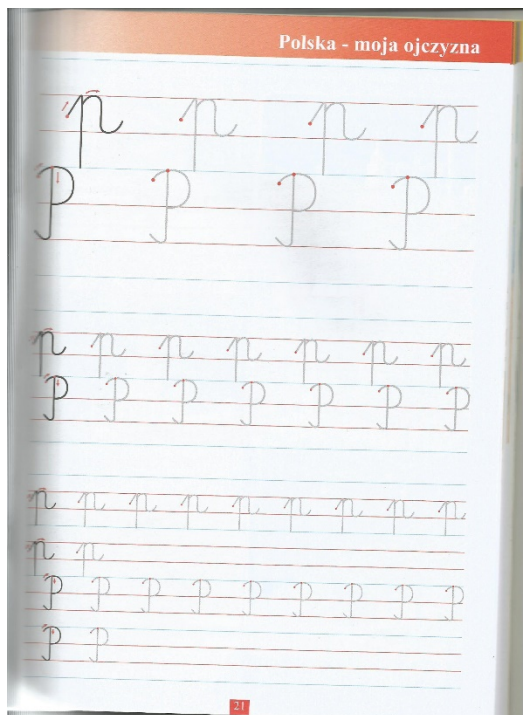 Polska - moja ojczyzna
p p p p
P P P P
p p p p p p p
P P P P P P P
p p p p p p p p p
p p
P P P P P P P P P
P P
21